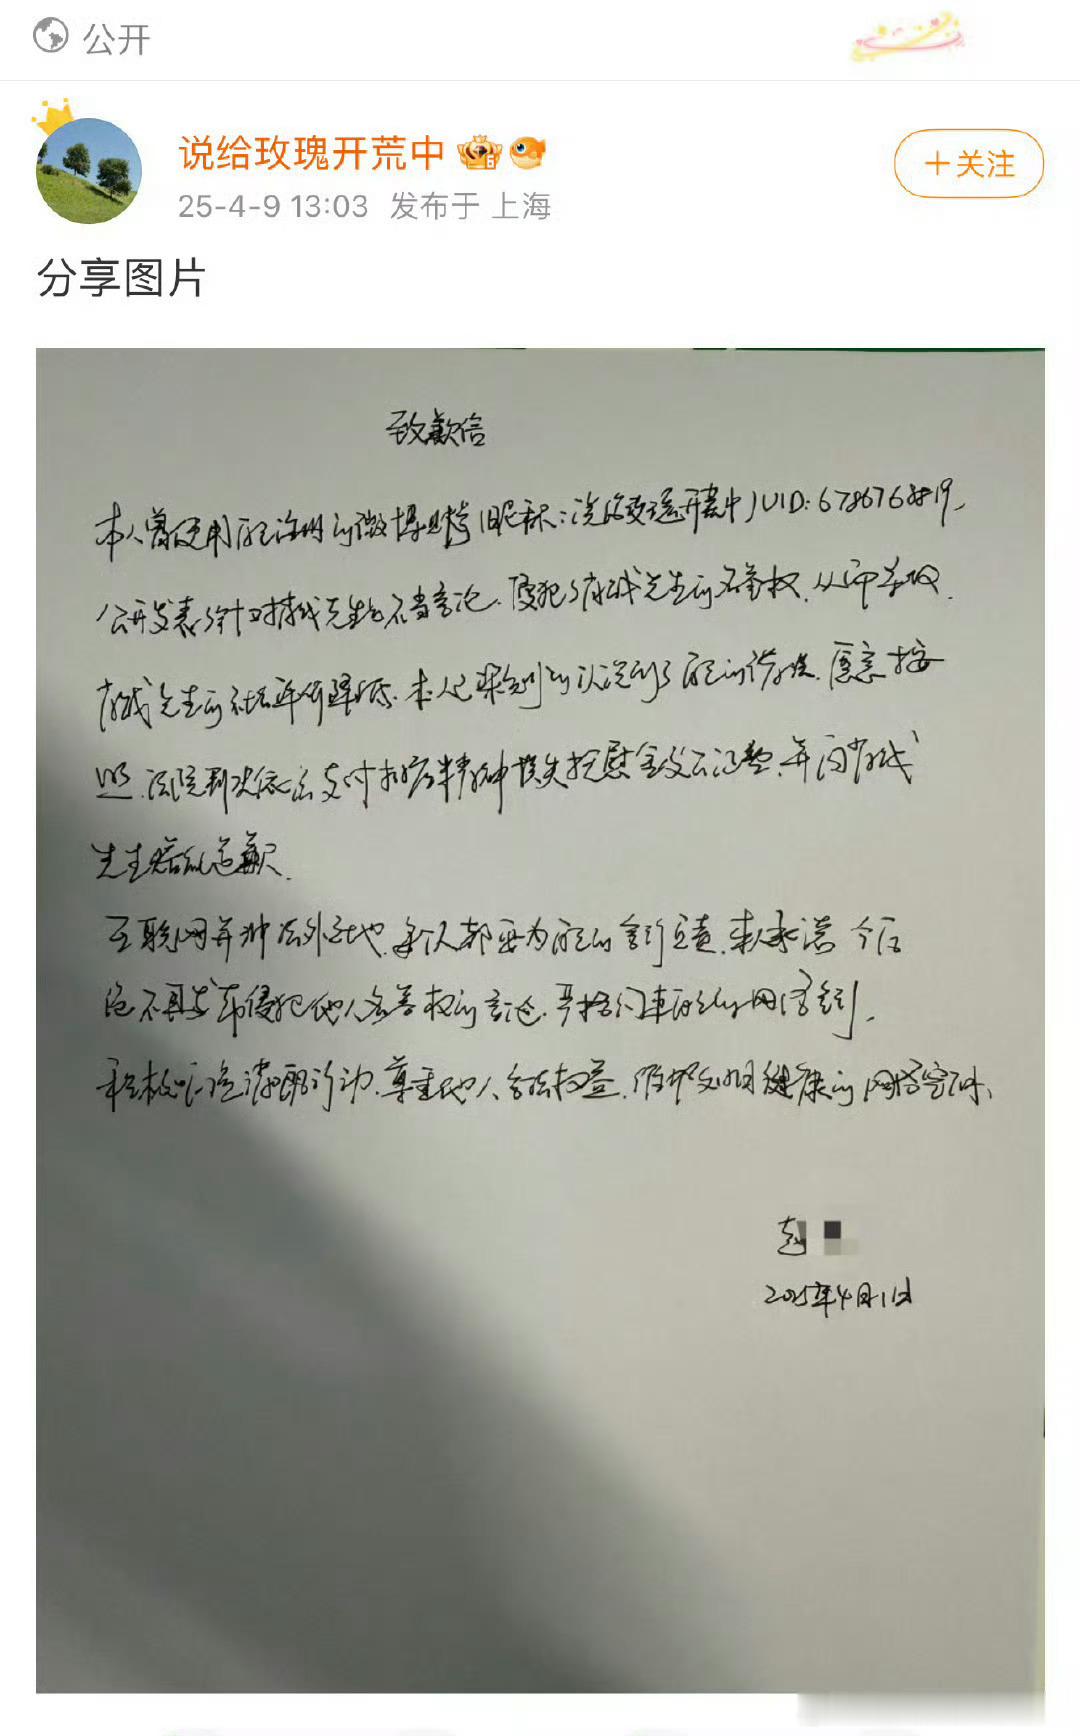 公开
说给玫瑰开荒中
25-4-9 13:03 发布于 上海
+关注
分享图片
致歉信
本人曾使用自己注册的微博账号(昵称:说给玫瑰开荒中)UID:
公开发表了针对 先生的不当言论,侵犯了 先生的名誉权,从而导致
先生的社会评价降低。本人已深刻的认识到了自己的错误,愿意按
照法院判决依法支付 精神损失抚慰金及公证费,并向
先生赔礼道歉。
互联网并非法外之地,每个人都要为自己的言行负责,本人承诺今后
绝不再发布侵犯他人名誉权的言论,严格约束自己的网络言行,
积极 行动,尊重他人合法权益,维护文明健康的网络空间。
赵
2025年4月1日